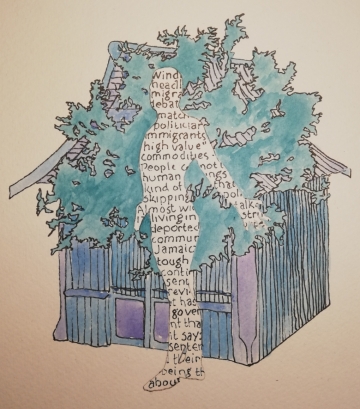 Wind
headl
migra
debat
mato
politician
immigrants
high value"
commodities.
People not
human ings
kind of that
skipping pool
Almost wi talk
living in stri
deported
commun
Jamaic
tough
contin
sent
revi
t has
gover
nt tha
it says
senten
their
being th
abour